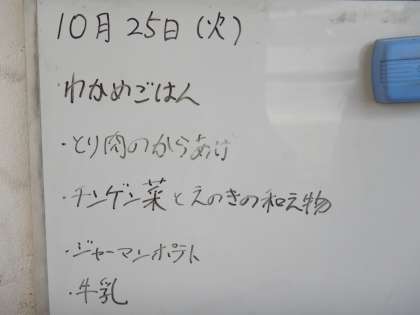 10月25日(火)
・わかめごはん
・とり肉のからあげ
・チンゲン菜とえのきの和え物
・ジャーマンポテト
・牛乳